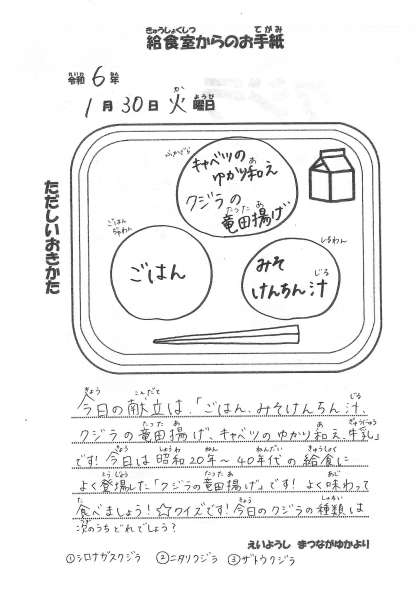 給食室からのお手紙
令和6年
1月30日火曜日
ただしいおきかた
ふかざら
キャベツの
ゆかり和え
クジラの
竜田揚げ
ごはん
ちゃわん
ごはん
しるわん
みそ
けんちん汁
今日の献立は、「ごはん、みそけんちん汁、
クジラの竜田揚げ、キャベツのゆかり和え、牛乳」
です!今日は昭和20年〜40年代の給食に
よく登場した「クジラの竜田揚げ」です!よく味わって
食べましょう!☆クイズです!今日のクジラの種類は
次のうちどれでしょう?
えいようし まつながゆかより
①シロナガスクジラ ②ニタリクジラ ③ザトウクジラ